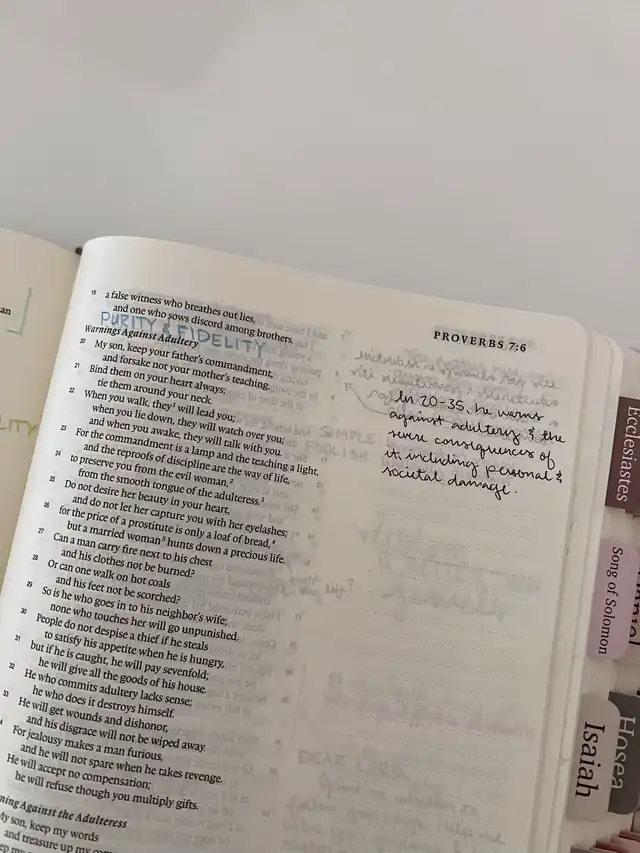 an
LITY
19 a false witness who breathes out lies,
and one who sows discord among brothers.
PURITY & FIDELITY
Warnings Against Adultery
20 My son, keep your father's commandment,
and forsake not your mother's teaching.
21 Bind them on your heart always;
tie them around your neck.
22 When you walk, they⁴ will lead you;
when you lie down, they will watch over you;
and when you awake, they will talk with you.
23 For the commandment is a lamp and the teaching a light,
and the reproofs of discipline are the way of life,
24 to preserve you from the evil woman,²
from the smooth tongue of the adulteress.³
25 Do not desire her beauty in your heart,
and do not let her capture you with her eyelashes;
26 for the price of a prostitute is only a loaf of bread,⁴
but a married woman⁵ hunts down a precious life.
27 Can a man carry fire next to his chest
and his clothes not be burned?
28 Or can one walk on hot coals
and his feet not be scorched?
29 So is he who goes in to his neighbor's wife;
none who touches her will go unpunished.
30 People do not despise a thief if he steals
to satisfy his appetite when he is hungry,
31 but if he is caught, he will pay sevenfold;
he will give all the goods of his house.
32 He who commits adultery lacks sense;
he who does it destroys himself.
33 He will get wounds and dishonor,
and his disgrace will not be wiped away.
4 For jealousy makes a man furious,
and he will not spare when he takes revenge.
He will accept no compensation;
he will refuse though you multiply gifts.
ning Against the Adulteress
My son, keep my words
and treasure up my
PROVERBS 7:6
In 20-35, he warns
against adultery & the
severe consequences of
it, including personal &
societal damage.
SIMPLE
FOOLISH
DEAR LORD,
Ecclesiastes
Song of Solomon
Isaiah
Hosea